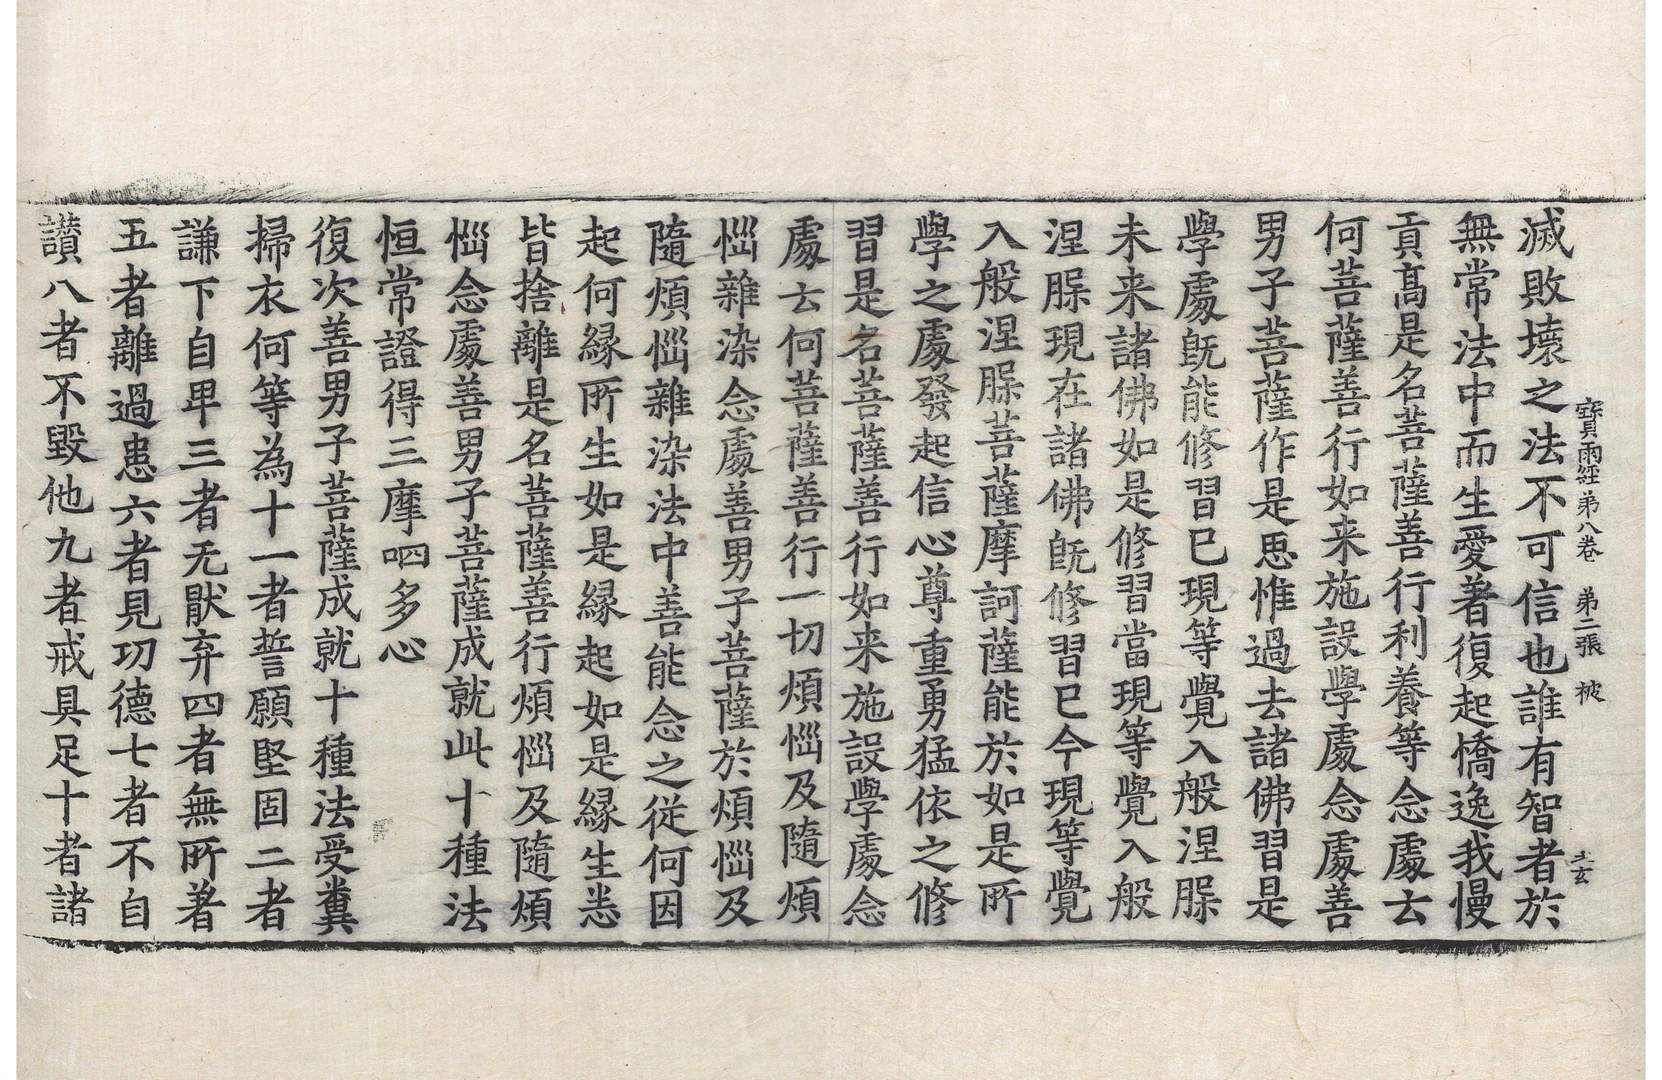 寳雨經苐八卷　苐二張　被
士玄
滅敗壞之法不可信也誰有智者於
無常法中而生愛著復起憍逸我慢
貢髙是名菩薩善行利養等念處云
何菩薩善行如来施設學處念處善
男子菩薩作是思惟過去諸佛習是
學處旣能修習已現等覺入般涅脲
未来諸佛如是修習當現等覺入般
涅脲現在諸佛旣修習已今現等覺
入般涅脲菩薩摩訶薩能於如是所
學之處發起信心尊重勇猛依之修
習是名菩薩善行如来施設學處念
處云何菩薩善行一切煩惱及隨煩
惱雜染念處善男子菩薩於煩惱及
隨煩惱雜染法中善能念之從何因
起何緣所生如是緣起如是緣生悉
皆捨離是名菩薩善行煩惱及隨煩
惱念處善男子菩薩成就此十種法
恒常證得三摩呬多心
復次善男子菩薩成就十種法受糞
掃衣何等為十一者誓願堅固二者
謙下自卑三者无猒弃四者無所著
五者離過患六者見功德七者不自
讃八者不毀他九者戒具足十者諸